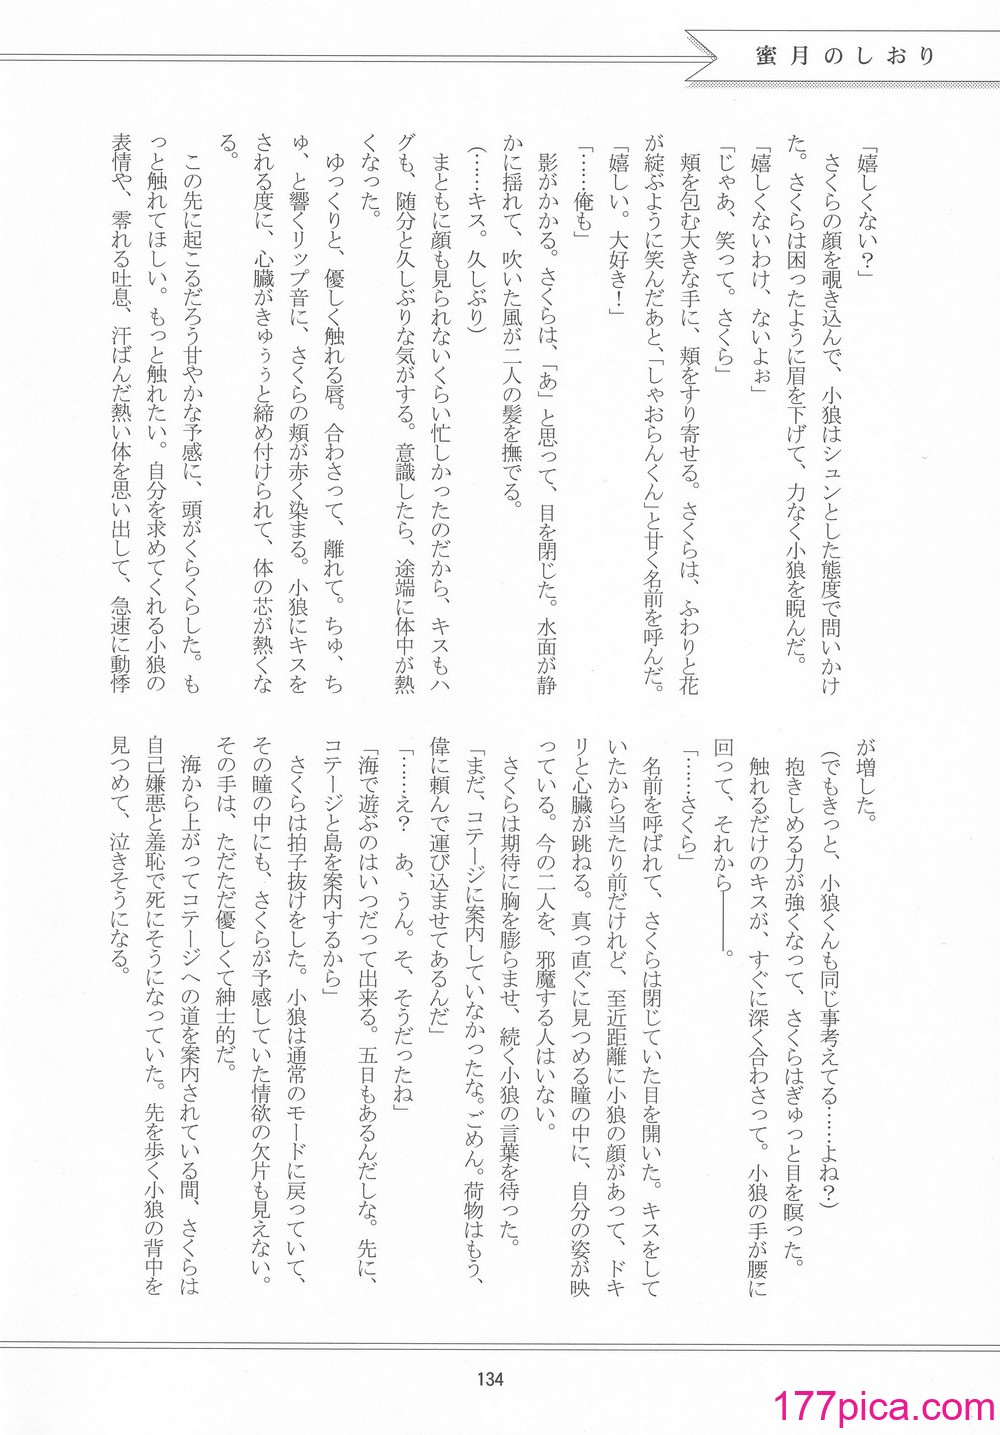 蜜月のしおり
「嬉しくない?」
さくらの顔を覗き込んで、小狼はシュンとした態度で問いかけ
た。さくらは困ったように眉を下げて、力なく小狼を睨んだ。
「嬉しくないわけ、ないよぉ」
「じゃあ、笑って。さくら」
頬を包む大きな手に、頬をすり寄せる。さくらは、ふわりと花
が綻ぶように笑んだあと、「しゃおらんくん」と甘く名前を呼んだ。
「嬉しい。大好き!」
「……俺も」
影がかかる。さくらは、「あ」と思って、目を閉じた。水面が静
かに揺れて、吹いた風が二人の髪を撫でる。
(……キス。久しぶり)
まともに顔も見られないくらい忙しかったのだから、キスもハ
グも、随分と久しぶりな気がする。意識したら、途端に体中が熱
くなった。
ゆっくりと、優しく触れる唇。合わさって、離れて。ちゅ、ち
ゅ、と響くリップ音に、さくらの頬が赤く染まる。小狼にキスを
される度に、心臓がきゅぅぅと締め付けられて、体の芯が熱くな
る。
この先に起こるだろう甘やかな予感に、頭がくらくらした。も
っと触れてほしい。もっと触れたい。自分を求めてくれる小狼の
表情や、零れる吐息、汗ばんだ熱い体を思い出して、急速に動悸
が増した。
(でもきっと、小狼くんも同じ事考えてる……よね?)
抱きしめる力が強くなって、さくらはぎゅっと目を瞑った。
触れるだけのキスが、すぐに深く合わさって。小狼の手が腰に
回って、それから――。
「……さくら」
名前を呼ばれて、さくらは閉じていた目を開いた。キスをして
いたから当たり前だけれど、至近距離に小狼の顔があって、ドキ
リと心臓が跳ねる。真っ直ぐに見つめる瞳の中に、自分の姿が映
っている。今の二人を、邪魔する人はいない。
さくらは期待に胸を膨らませ、続く小狼の言葉を待った。
「まだ、コテージに案内していなかったな。ごめん。荷物はもう、
偉に頼んで運び込ませてあるんだ」
「……え? あ、うん。そ、そうだったね」
「海で遊ぶのはいつだって出来る。五日もあるんだしな。先に、
コテージと島を案内するから」
さくらは拍子抜けをした。小狼は通常のモードに戻っていて、
その瞳の中にも、さくらが予感していた情欲の欠片も見えない。
その手は、ただただ優しくて紳士的だ。
海から上がってコテージへの道を案内されている間、さくらは
自己嫌悪と羞恥で死にそうになっていた。先を歩く小狼の背中を
見つめて、泣きそうになる。
134
177pica.com